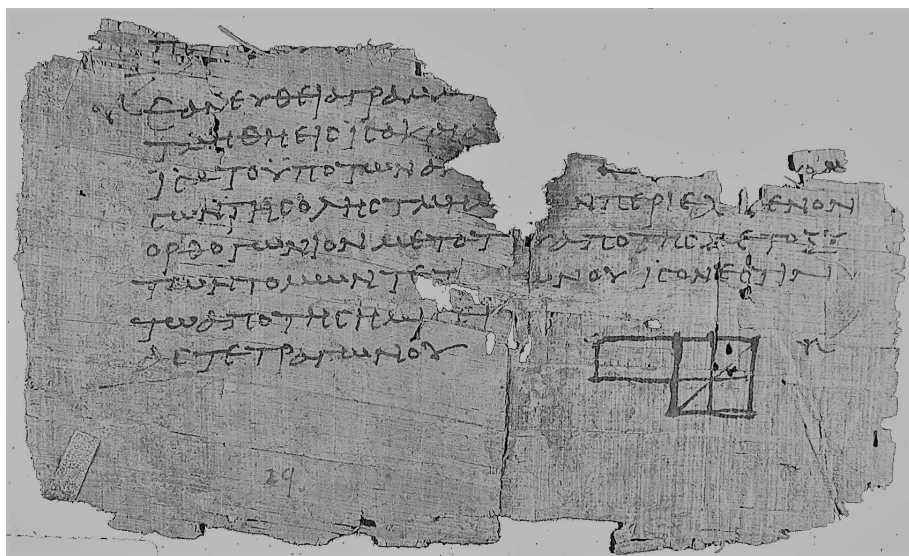 ΕΑΝΕΥΘΕΙΑΓΡΑΜΜ
ΤΜΗΘΗΕΙΣΙΣΑΚΑΙΑ
ΙΣΑΤΟΥΠΟΤΩΝΑ
ΣΩΝΤΗΣΟΛΗΣΤΜΗΜ ΝΠΕΡΙΕΧ ΜΕΝΟΝ
ΟΡΘΟΓΩΝΙΟΝΜΕΤΑΤ ΑΠΟΤΗΣΜΕΤΟΞΥ
ΤΩΝΤΟΜΩΝΤΕΤ ΩΝΟΥΙΣΟΝΕΣΤΙΝ
ΤΩΑΠΟΤΗΣΗΜΙ
ΑΣΤΕΤΡΑΓΩΝΟΥ
29